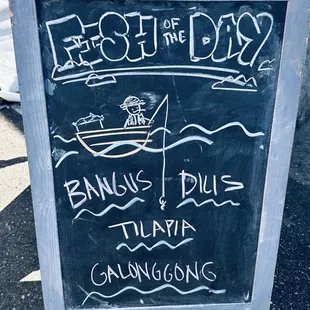 FISH OF THE DAY
BANGUS DILIS
TILAPIA
GALONGGONG